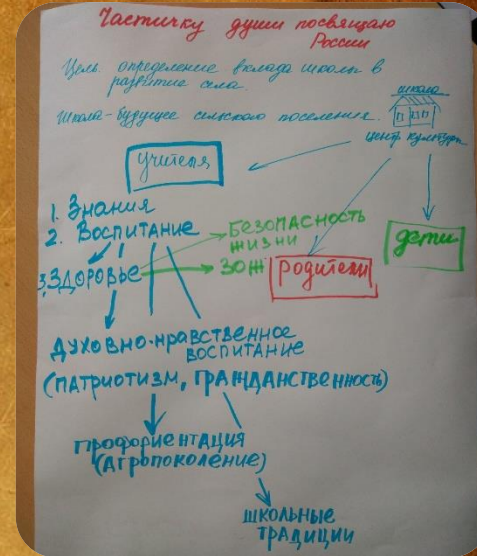 Частичку души посвящаю
России
Цель: определение вклада школы в
развитие села.
школа
Школа-будущее сельского поселения.
центр культуры
учителя
1. Знания
2. Воспитание
Безопасность
жизни
дети
3. Здоровье
ЗОЖ
родители
Духовно-нравственное
воспитание
(патриотизм, гражданственность)
профориентация
(Агропоколение)
школьные
традиции